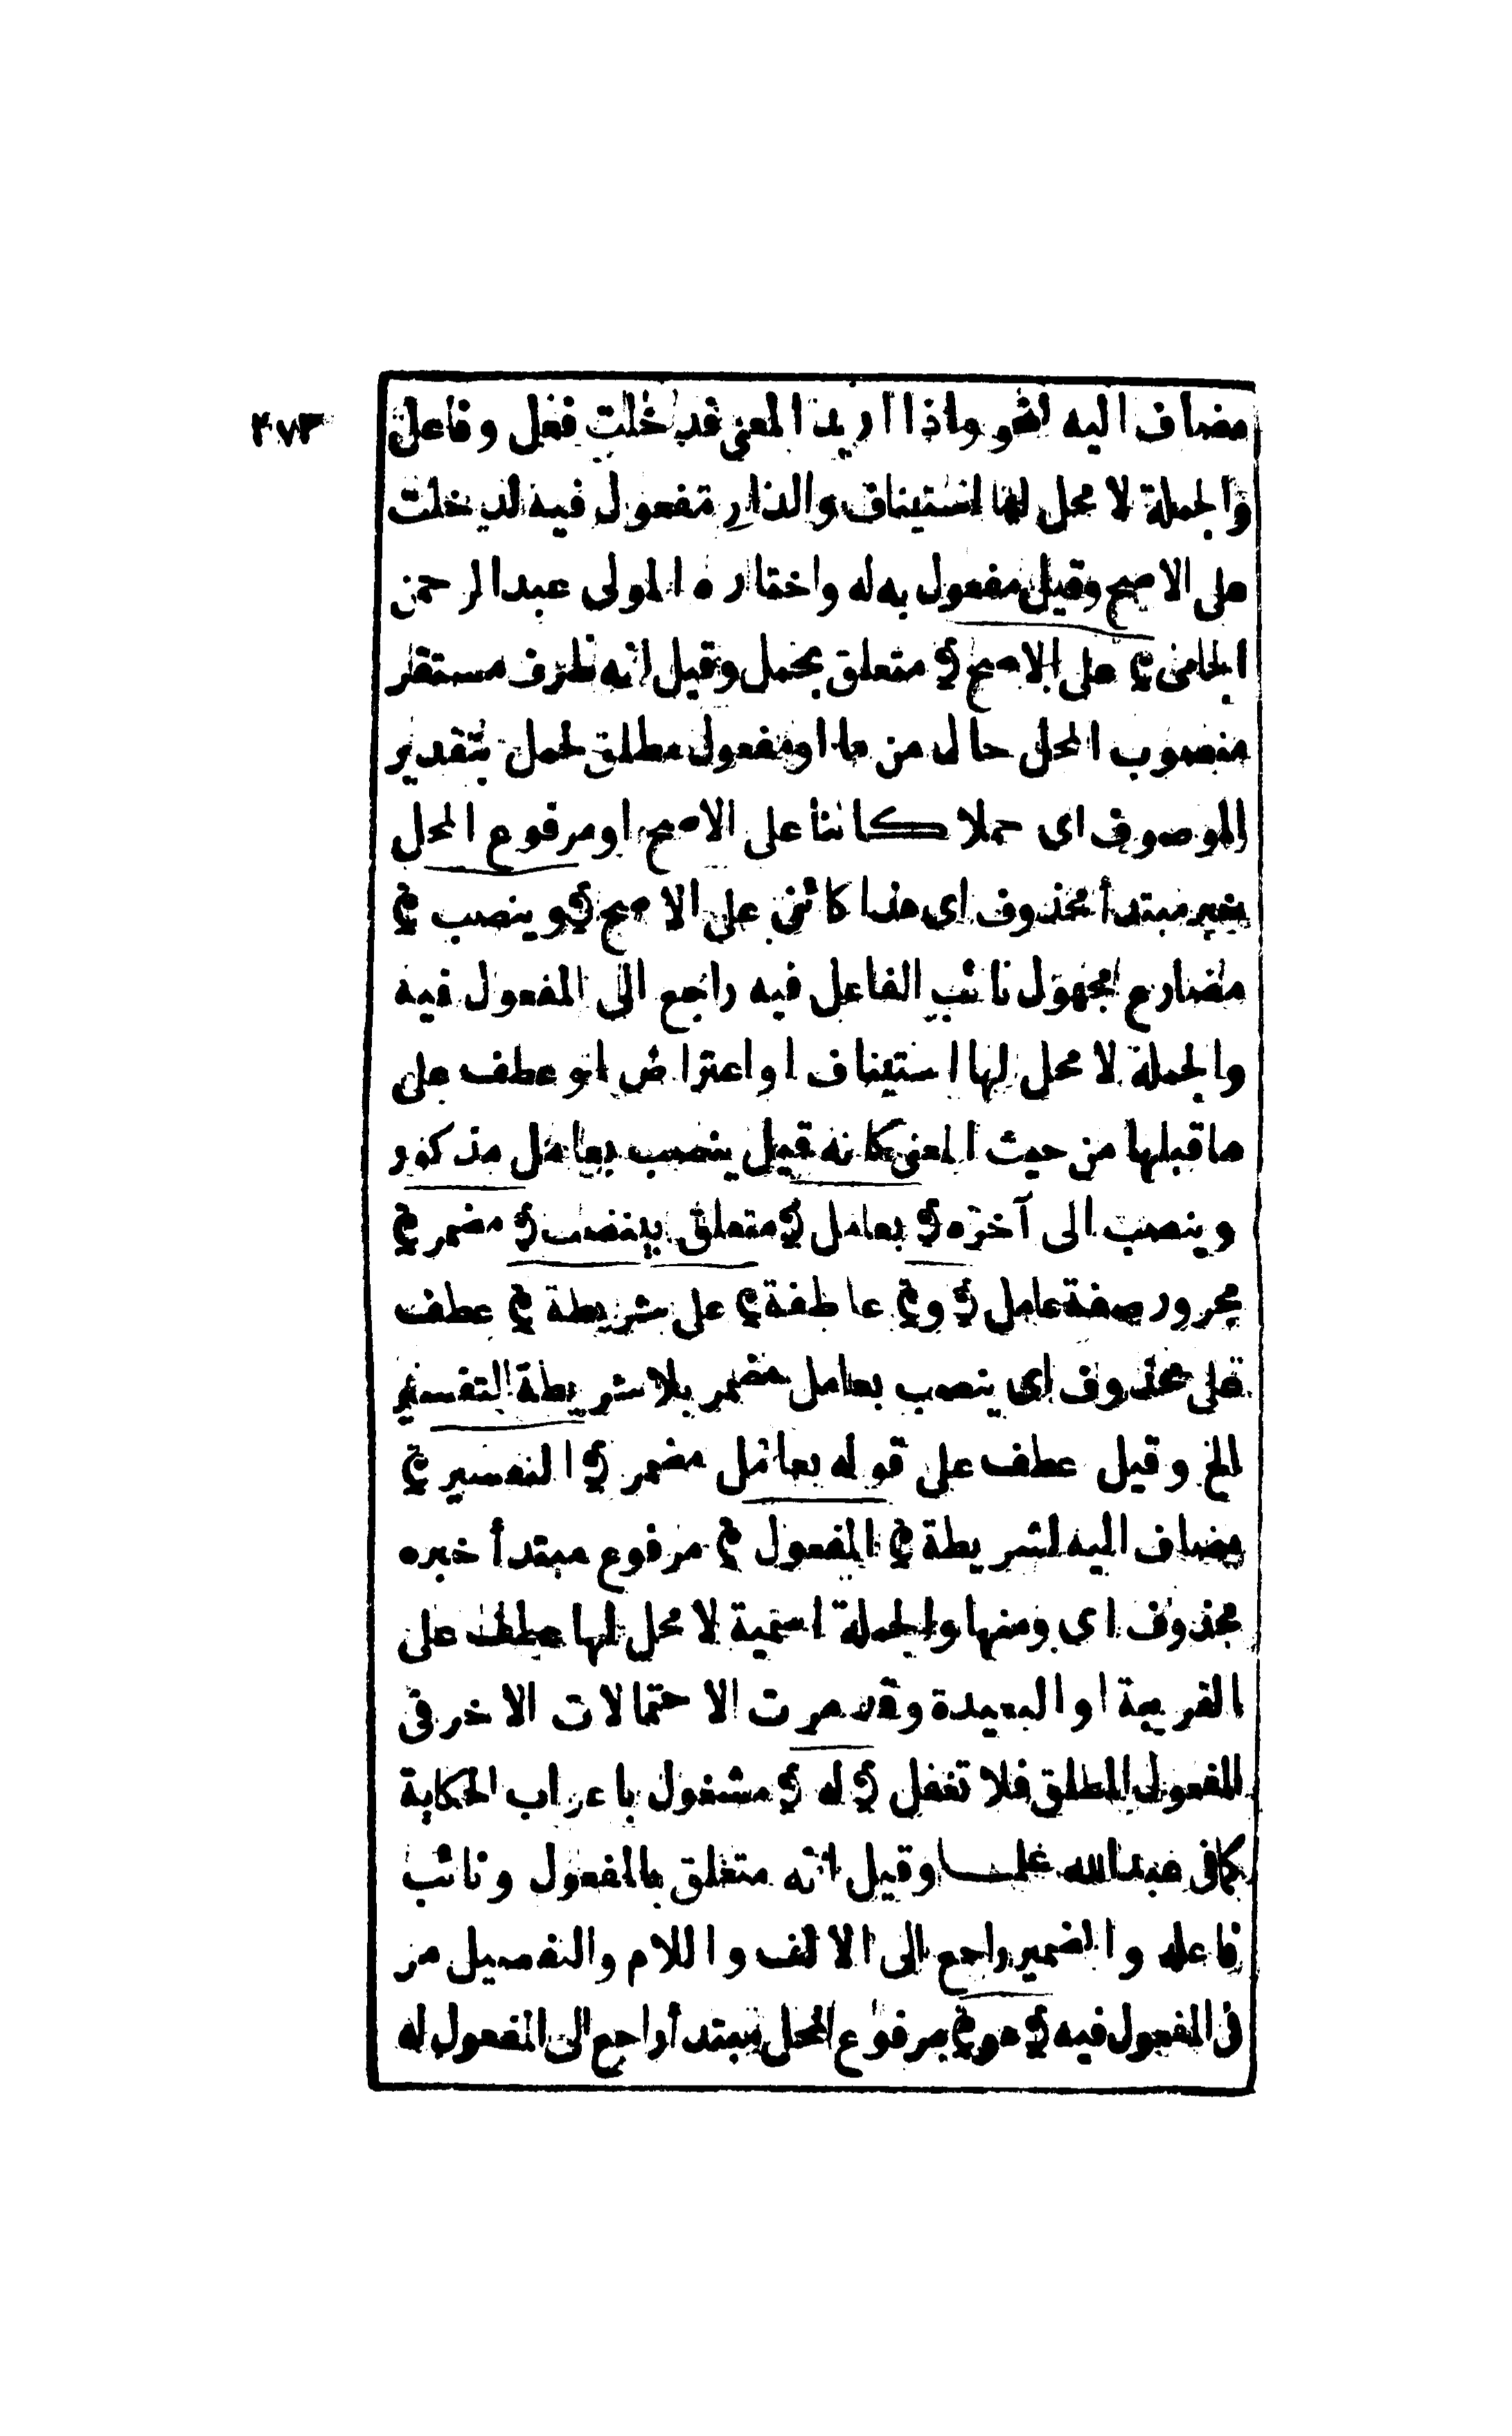 ٢٧٣
مضاف اليه لنحو واذا اريد المعنى فدخلت فعل وفاعل
والجملة لا محل لها استيناف والدار مفعول فيه لدخلت
على الاصح وقيل مفعول به له واختاره المولى عبدالرحمن
الجامى ﴿ على الاصح ﴾ متعلق بحمل وقيل انه ظرف مستقر
منصوب المحل حال من ما او مفعول مطلق لحمل بتقدير
الموصوف اى حملا كائنا على الاصح او مرفوع المحل
خبر مبتدأ محذوف اى هذا كائن على الاصح ﴾ وينصب ﴿
مضارع مجهول نائب الفاعل فيه راجع الى المفعول فيه
والجملة لا محل لها استيناف او اعتراض او عطف على
ما قبلها من حيث المعنى كانه قيل ينصب بعامل مذكور
وينصب الى آخره ﴾ بعامل ﴾ متعلق بينصب ﴾ مضمر ﴿
مجرور صفة عامل ﴾ و ﴿ عاطفة ﴾ على شريطة ﴿ عطف
على محذوف اى ينصب بعامل مضمر بلا شريطة التفسير
الخ وقيل عطف على قوله بعامل مضمر ﴾ التفسير ﴿
مضاف اليه لشريطة ﴿ المفعول ﴿ مرفوع مبتدأ خبره
محذوف اى ومنها والجملة اسمية لا محل لها عطف على
القريبة او البعيدة وقد مرت الاحتمالات الاخر فى
المفعول المطلق فلا تغفل ﴾ له ﴾ مشغول باعراب الحكاية
كما فى عبدالله علما وقيل انه متعلق بالمفعول ونائب
فاعله والضمير راجع الى الالف واللام والتفصيل مر
فى المفعول فيه ﴾ هو ﴿ مرفوع المحل مبتدأ راجع الى المفعول له